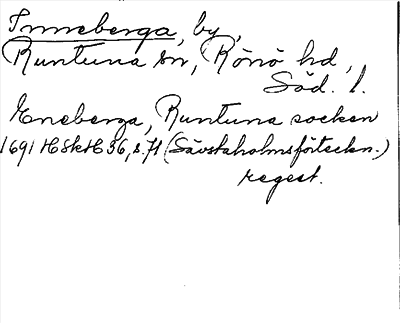 Inneberga, by,
Runtuna sn, Rönö hd,
Söd. l.
Eneberga, Runtuna socken
1691 HSH 36, s. 71 (Sävstaholmsförteckn.)
regest.